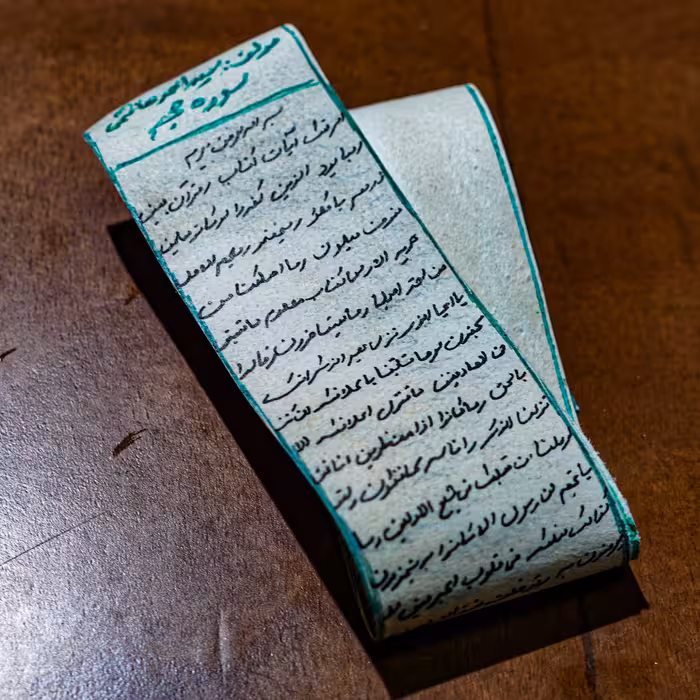 سید احمد هاشمی
سوره حجر
الر تلک آیات الکتاب و قرآن مبین
ربما یود الذین کفروا لو کانوا مسلمین
ذرهم یاکلوا و یتمتعوا و یلههم الامل
فسوف یعلمون وما اهلکنا من
قریه الا ولها کتاب معلوم ما تسبق
من امه اجلها وما یستاخرون و قالوا
یا ایها الذی نزل علیه الذکر انک
لمجنون لو ما تاتینا بالملائکه ان کنت
من الصادقین ما ننزل الملائکه الا
بالحق وما کانوا اذا منظرین انا نحن
نزلنا الذکر و انا له لحافظون ولقد
ارسلنا من قبلک فی شیع الاولین وما
یاتیهم من رسول الا کانوا به یستهزون
کذلک نسلکه فی قلوب المجرمین لا
یومنون به وقد خلت